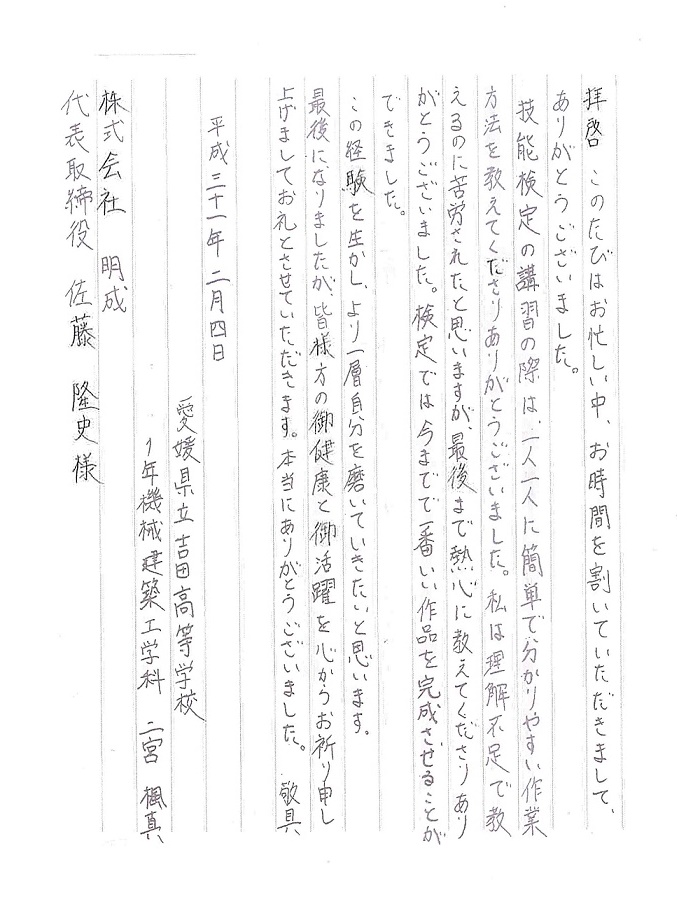 拝啓　このたびはお忙しい中、お時間を割いていただきまして、
ありがとうございました。
技能検定の講習の際は、一人一人に簡単で分かりやすい作業
方法を教えてくださりありがとうございました。私は理解不足で教
えるのに苦労されたと思いますが、最後まで熱心に教えてくださりあり
がとうございました。検定では今までで一番いい作品を完成させることが
できました。
この経験を生かし、より一層自分を磨いていきたいと思います。
最後になりましたが、皆様方の御健康と御活躍を心からお祈り申し
上げましてお礼とさせていただきます。本当にありがとうございました。　敬具
平成三十一年二月四日
愛媛県立吉田高等学校
1年機械建築工学科　二宮　楓真
株式会社　明成
代表取締役　佐藤　隆史様